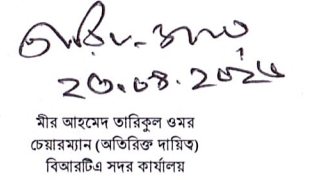 ২০.০৪.২০২৫
মীর আহমেদ তারিকুল ওমর
চেয়ারম্যান (অতিরিক্ত দায়িত্ব)
বিআরটিএ সদর কার্যালয়